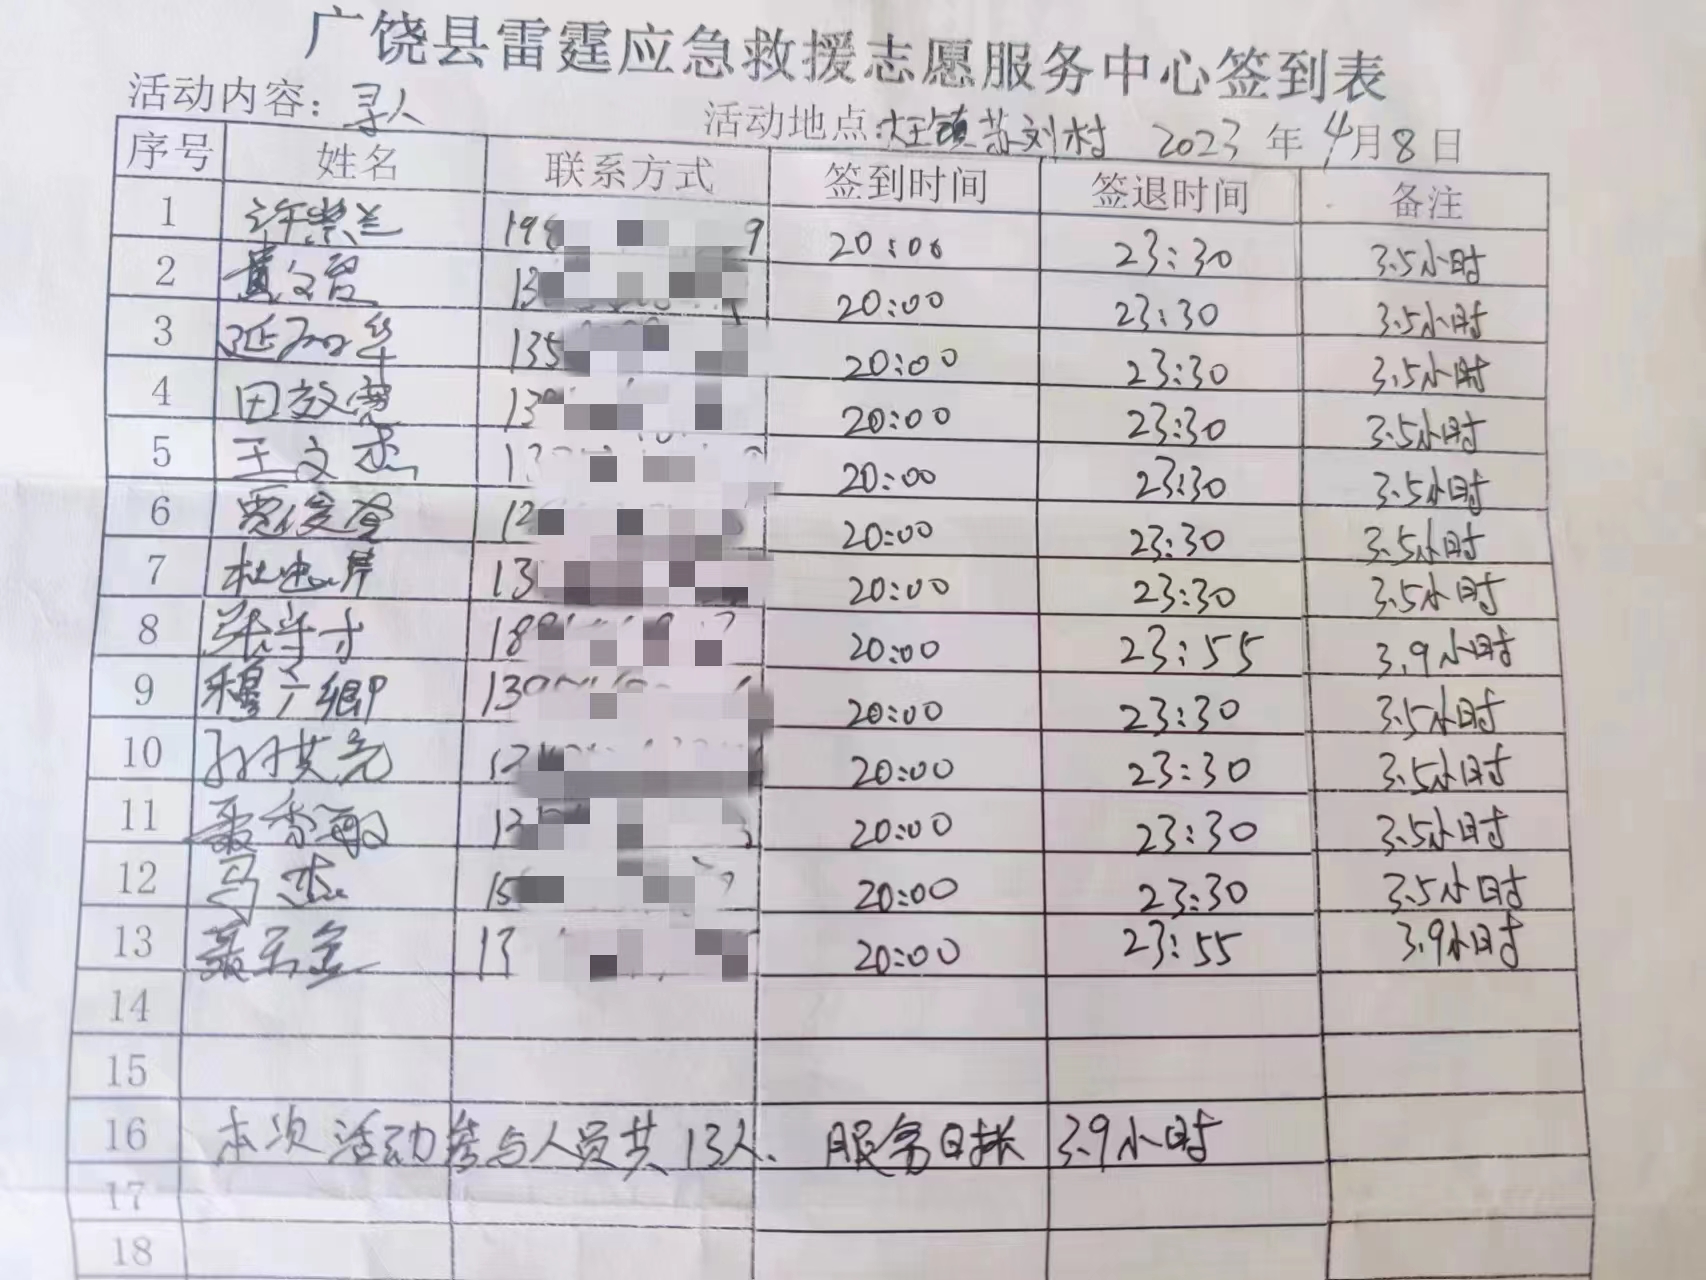 广饶县雷霆应急救援志愿服务中心签到表
活动内容：寻人 活动地点：大王镇苏刘村 2023年4月8日
序号 姓名 联系方式 签到时间 签退时间 备注
1 许崇兰 198 9 20:00 23:30 3.5小时
2 13 20:00 23:30 3.5小时
3 延 华 135 20:00 23:30 3.5小时
4 田效 13 20:00 23:30 3.5小时
5 王文杰 13 20:00 23:30 3.5小时
6 贾俊 20:00 23:30 3.5小时
7 杜忠 13 20:00 23:30 3.5小时
8 18 20:00 23:55 3.9小时
9 穆 卿 130 20:00 23:30 3.5小时
10 孙其亮 20:00 23:30 3.5小时
11 聂秀敏 13 20:00 23:30 3.5小时
12 马杰 15 20:00 23:30 3.5小时
13 聂玉金 13 20:00 23:55 3.9小时
14
15
16 本次活动参与人员共13人. 服务时长 3.9小时
17
18